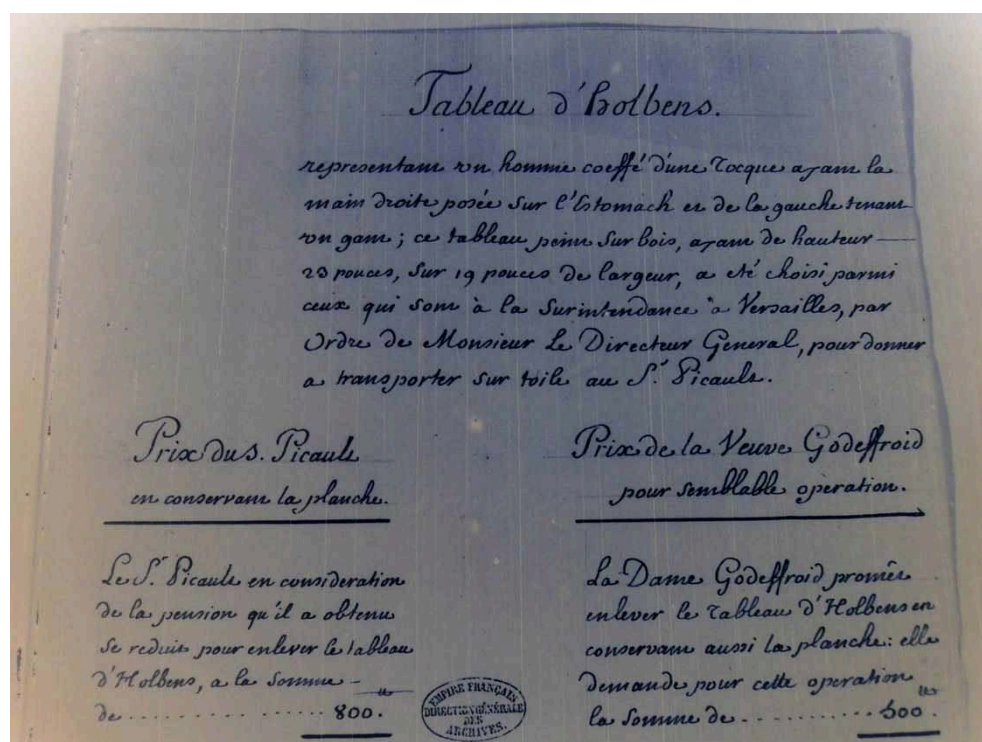 Tableau d'holbens.
representant un homme coeffé d'une Tocque ayant la
main droite posée sur l'Estomach et de la gauche tenant
un gant ; ce tableau peint sur bois, ayant de hauteur
23 pouces, sur 19 pouces de largeur, a eté choisi parmi
ceux qui sont à la Surintendance a Versailles, par
Ordre de Monsieur Le Directeur General, pour donner
a transporter sur toile au Sr. Picault.
Prix du s. Picault
en conservant la planche.
Le Sr. Picault en consideration
de la pension qu'il a obtenu
se reduit pour enlever le tableau
d'Holbens, a la Somme
de . . . . . . . . . . . . . . 800.
Prix de la Veuve Godeffroid
pour semblable operation.
La Dame Godeffroid promet
enlever le Tableau d'Holbens en
conservant aussi la planche : elle
demande pour cette operation
la Somme de . . . . . . . . . . 500.
EMPIRE FRANÇAIS
DIRECTION GÉNÉRALE
DES
ARCHIVES.